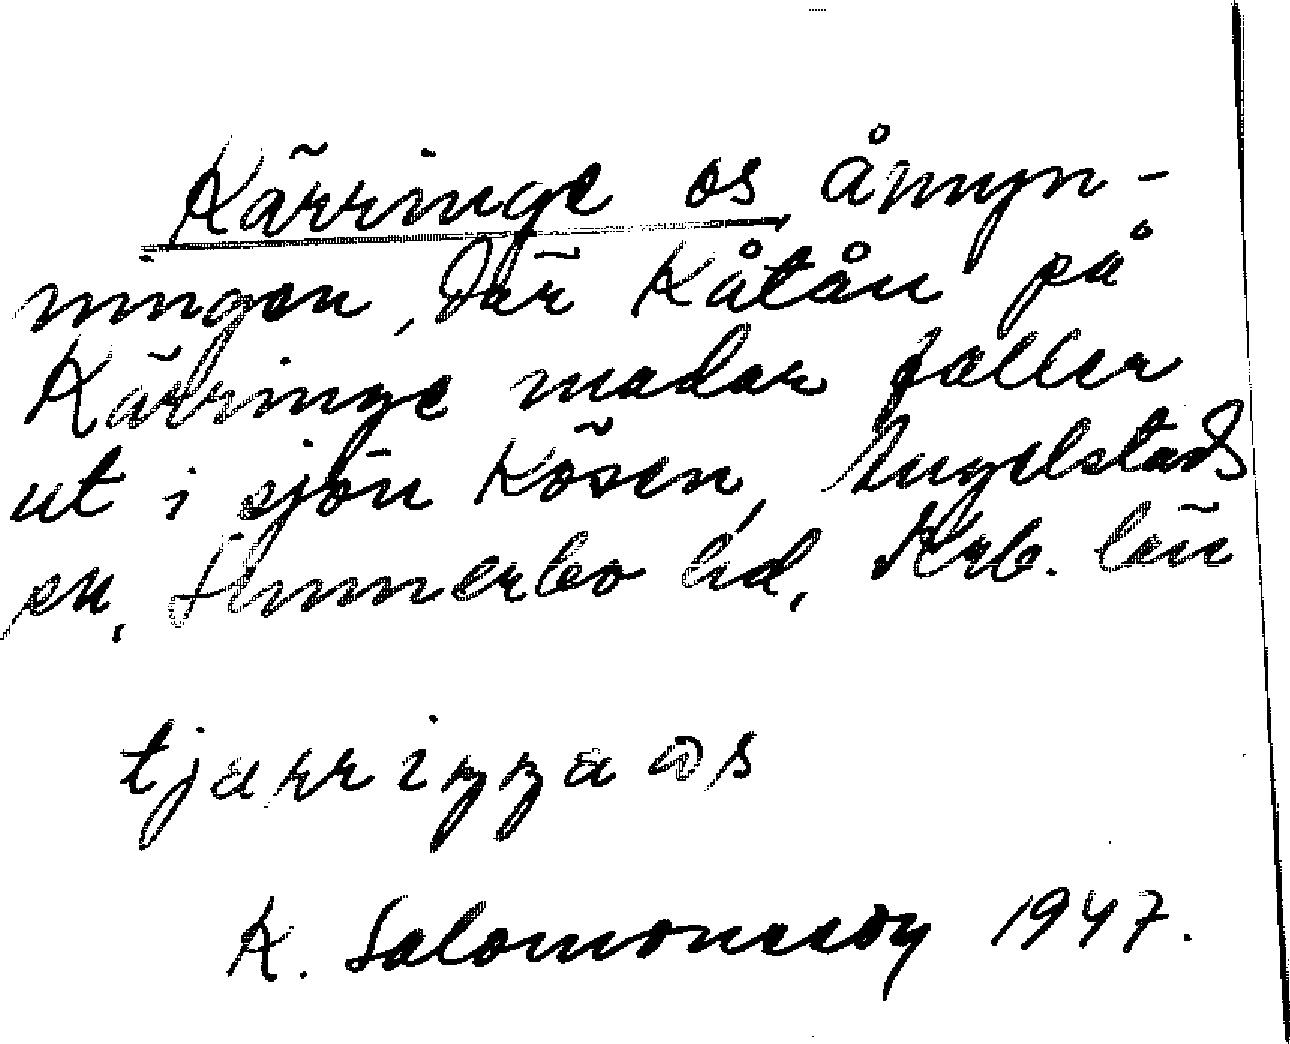 Kärringe os åmyn-
ningen, där Kåtån på
Kärringe madar faller
ut i sjön Kösen, Angelstads
sn, Sunnerbo hd, Krb. län
tjärriŋŋa os
K. Salomonsson 1947.